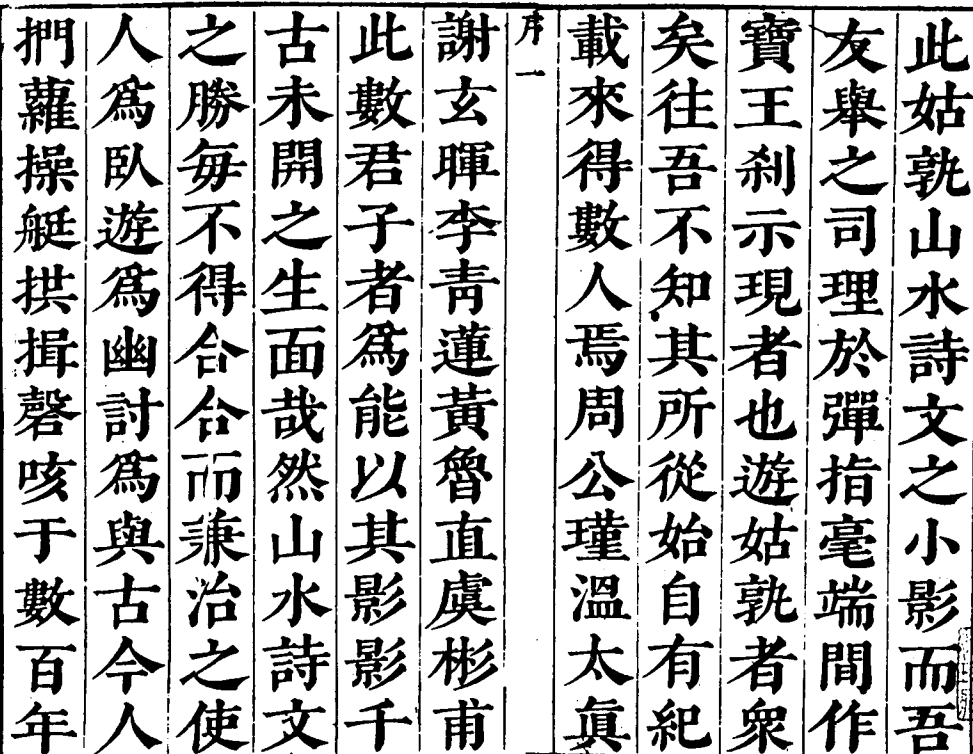 此姑孰山水詩文之小影而吾
友舉之司理於彈指毫端間作
寶王刹示現者也遊姑孰者衆
矣往吾不知其所從始自有紀
載來得數人焉周公瑾溫太眞
序一
謝玄暉李青蓮黃魯直虞彬甫
此數君子者爲能以其影影千
古未開之生面哉然山水詩文
之勝每不得合合而兼治之使
人爲臥遊爲幽討爲與古今人
捫蘿操艇拱揖磬咳于數百年